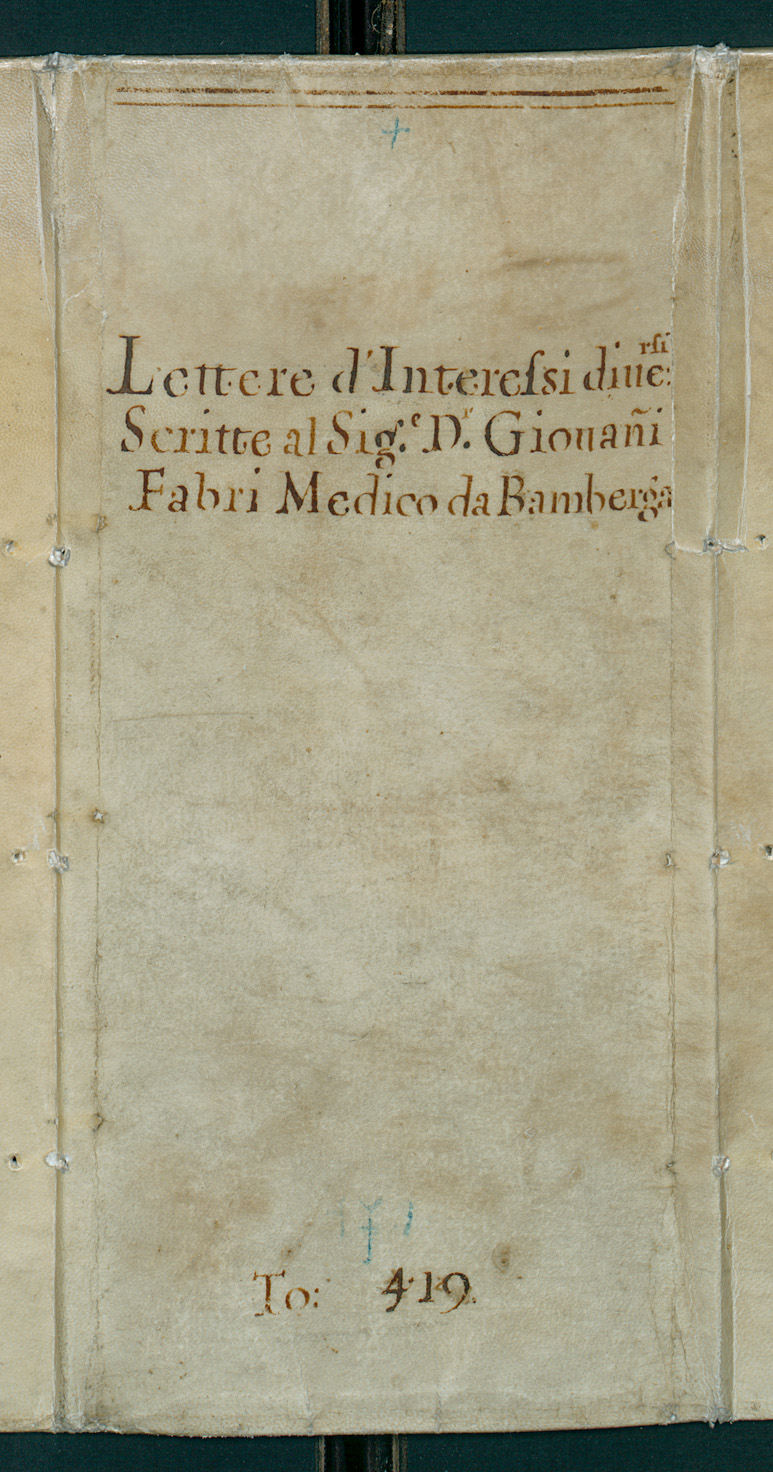 +
Lettere d'Intereſsi diue:rſi
Scritte al Sig.e D.r Giouañi
Fabri Medico da Bamberga
To: 419.